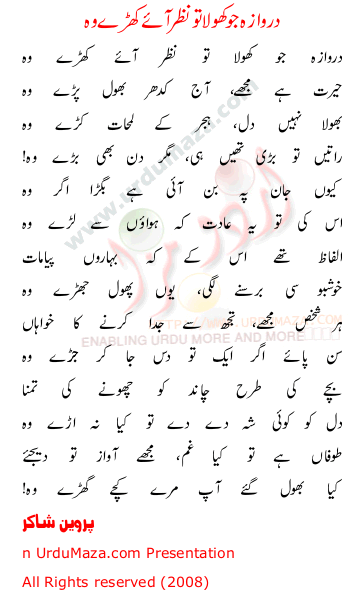 دروازہ جو کھولا تو نظر آئے کھڑے وہ
دروازہ جو کھولا تو نظر آئے کھڑے وہ
حیرت ہے مجھے، آج کدھر بھول پڑے وہ
بھولا نہیں دل، ہجر کے لمحات کڑے وہ
راتیں تو بڑی تھیں ہی، مگر دن بھی بڑے وہ!
کیوں جان پہ بن آئی ہے بگڑا اگر وہ
اس کی تو یہ عادت کہ ہواؤں سے لڑے وہ
الفاظ تھے اس کے کہ بہاروں پیامات
خوشبو سی برسنے لگی، یوں پھول جھڑے وہ
ہر شخص مجھے، تجھ سے جدا کرنے کا خواہاں
سن پائے اگر ایک تو دس جا کر جڑے وہ
بچے کی طرح چاند کو چھونے کی تمنا
دل کو کوئی شہ دے دے تو کیا نہ اڑے وہ
طوفاں ہے تو کیا غم، مجھے آواز تو دیجئے
کیا بھول گئے آپ مرے کچے گھڑے وہ!
پروین شاکر
n UrduMaza.com Presentation
All Rights reserved (2008)
www.urdumaza.com
اردو مزا
HTTP://WWW.URDUMAZA.COM
ENABLING URDU MORE AND MORE